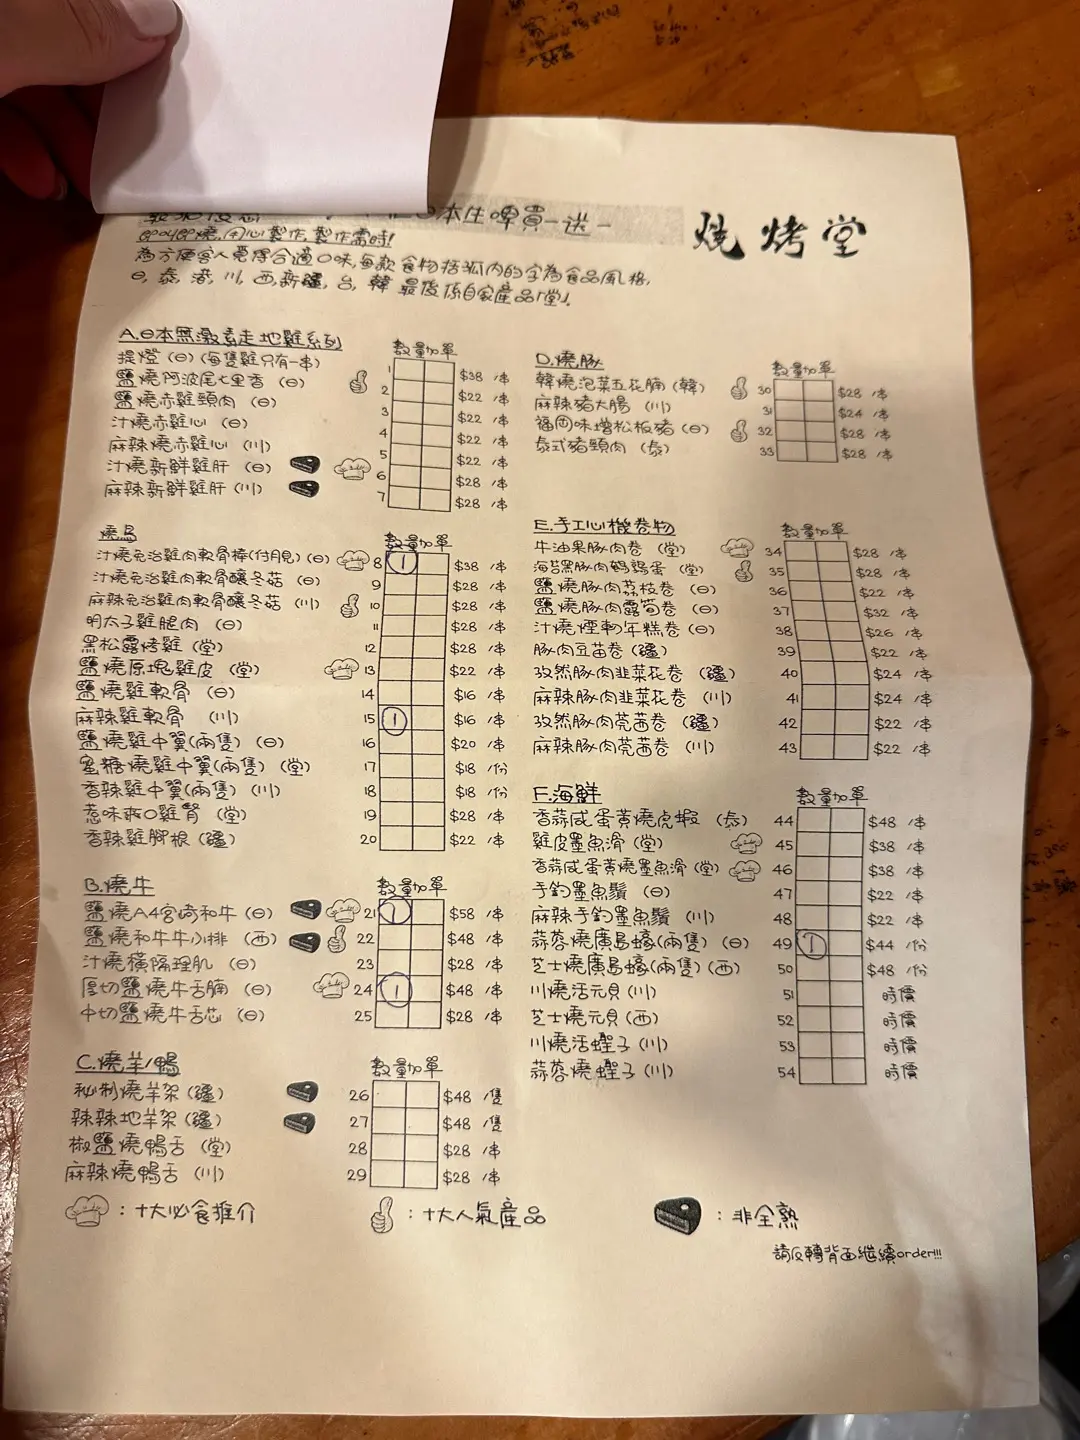 日本生啤買一送一
燒烤堂
即叫即燒,用心製作,製作需時!
為方便客人覓得合適口味,每款食物括弧內的字為食品風格,
日,泰,港,川,西,新疆,台,韓 最後係自家產品「堂」.
A.日本無激素走地雞系列 數量加單
提燈(日)(每隻雞只有一串) 1 $38 /串
鹽燒阿波尾七里香(日) 2 $22 /串
鹽燒赤雞頸肉(日) 3 $22 /串
汁燒赤雞心(日) 4 $22 /串
麻辣燒赤雞心(川) 5 $22 /串
汁燒新鮮雞肝(日) 6 $28 /串
麻辣新鮮雞肝(川) 7 $28 /串
燒鳥 數量加單
汁燒免治雞肉軟骨棒(付月見)(日) 8 1 $38 /串
汁燒免治雞肉軟骨釀冬菇(日) 9 $28 /串
麻辣免治雞肉軟骨釀冬菇(川) 10 $28 /串
明太子雞腿肉(日) 11 $28 /串
黑松露烤雞(堂) 12 $28 /串
鹽燒原塊雞皮(堂) 13 $22 /串
鹽燒雞軟骨(日) 14 $16 /串
麻辣雞軟骨(川) 15 1 $16 /串
鹽燒雞中翼(兩隻)(日) 16 $20 /串
蜜糖燒雞中翼(兩隻)(堂) 17 $18 /份
香辣雞中翼(兩隻)(川) 18 $18 /份
惹味爽口雞腎(堂) 19 $28 /串
香辣雞腳根(疆) 20 $22 /串
B.燒牛 數量加單
鹽燒A4宮崎和牛(日) 21 1 $58 /串
鹽燒和牛牛小排(西) 22 $48 /串
汁燒橫隔理肌(日) 23 $28 /串
厚切鹽燒牛舌腩(日) 24 1 $48 /串
中切鹽燒牛舌芯(日) 25 $28 /串
C.燒羊/鴨 數量加單
秘制燒羊架(疆) 26 $48 /隻
辣辣地羊架(疆) 27 $48 /隻
椒鹽燒鴨舌(堂) 28 $28 /串
麻辣燒鴨舌(川) 29 $28 /串
D.燒豚 數量加單
韓燒泡菜五花腩(韓) 30 $28 /串
麻辣豬大腸(川) 31 $24 /串
福岡味增松板豬(日) 32 $28 /串
泰式豬頸肉(泰) 33 $28 /串
E.手工心機卷物 數量加單
牛油果豚肉卷(堂) 34 $28 /串
海苔黑豚肉鵪鶉蛋(堂) 35 $28 /串
鹽燒豚肉荔枝卷(日) 36 $22 /串
鹽燒豚肉露筍卷(日) 37 $32 /串
汁燒煙韌年糕卷(日) 38 $26 /串
豚肉豆苗卷(疆) 39 $22 /串
孜然豚肉韭菜花卷(疆) 40 $24 /串
麻辣豚肉韭菜花卷(川) 41 $24 /串
孜然豚肉芫茜卷(疆) 42 $22 /串
麻辣豚肉芫茜卷(川) 43 $22 /串
F.海鮮 數量加單
香蒜咸蛋黃燒虎蝦(泰) 44 $48 /串
雞皮墨魚滑(堂) 45 $38 /串
香蒜咸蛋黃燒墨魚滑(堂) 46 $38 /串
手釣墨魚鬚(日) 47 $22 /串
麻辣手釣墨魚鬚(川) 48 $22 /串
蒜蓉燒廣島蠔(兩隻)(日) 49 1 $44 /份
芝士燒廣島蠔(兩隻)(西) 50 $48 /份
川燒活元貝(川) 51 時價
芝士燒元貝(西) 52 時價
川燒活蟶子(川) 53 時價
蒜蓉燒蟶子(川) 54 時價
:十大必食推介 :十大人氣產品 :非全熟
請反轉背面繼續order!!!